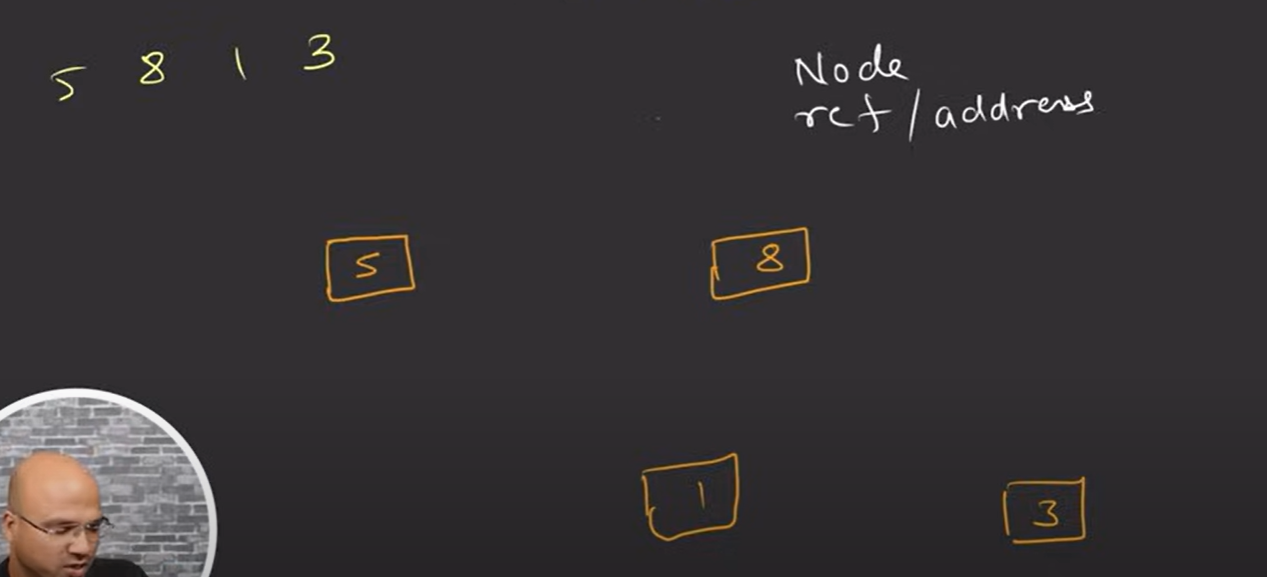 5 8 1 3
Node
ref/address
5
8
1
3